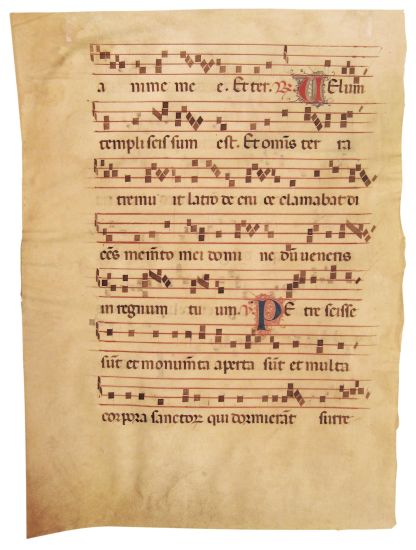 a nime me e. Et ter. R. Uelum
templi scissum est. Et omis ter ra
tremu it latro de cru ce clamabat di
cēs memēto mei domi ne dū veneris
in regnum tu um. V. Pe tre scisse
sūt et monumēta aperta sūt et multa
corpora sanctoꝝ qui dormierāt surre